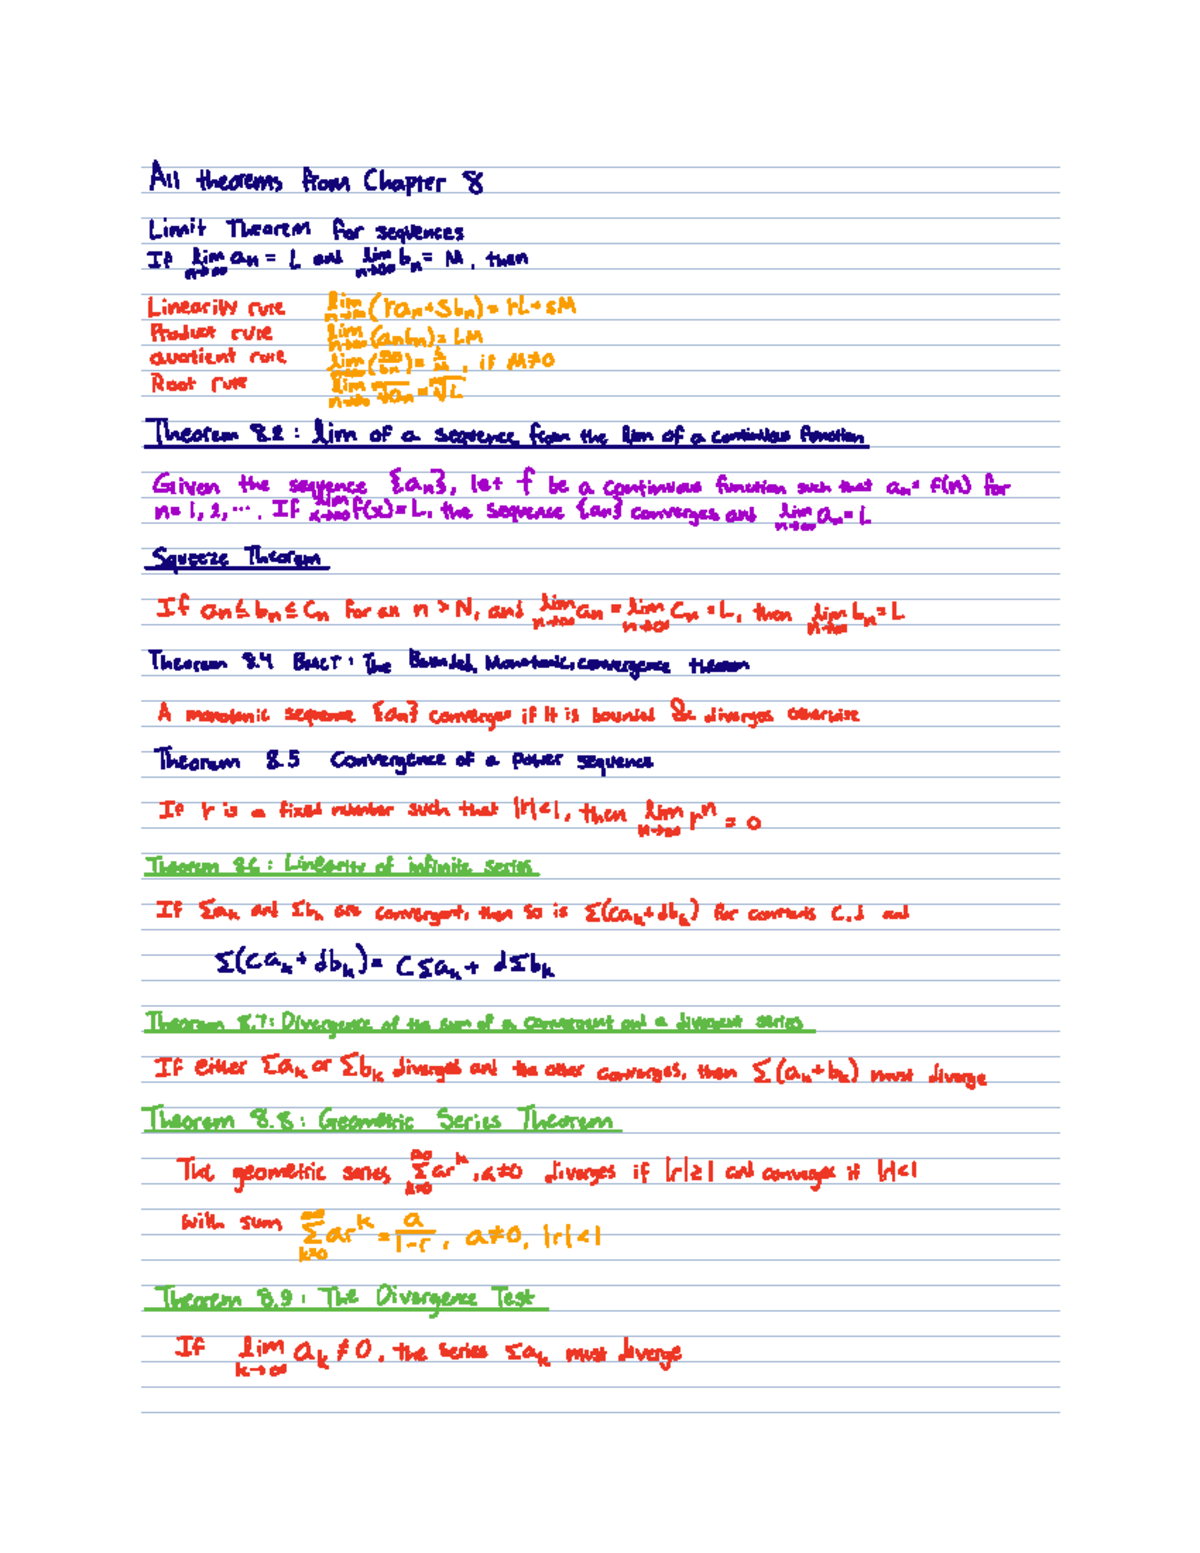 All theorems from Chapter 8
Limit Theorem for sequences
If lim n→∞ an = L and lim n→∞ bn = M, then
Linearity rule lim n→∞ (ran + sbn) = rL + sM
Product rule lim n→∞ (anbn) = LM
quotient rule lim n→∞ (an/bn) = L/M, if M≠0
Root rule lim n→∞ ᵐ√an = ᵐ√L
Theorem 8.2: lim of a sequence from the lim of a continuous function
Given the sequence {an}, let f be a continuous function such that an = f(n) for
n = 1, 2, .... If lim x→∞ f(x) = L, the sequence {an} converges and lim n→∞ an = L
Squeeze Theorem
If an ≤ bn ≤ Cn for all n > N, and lim n→∞ an = lim n→∞ Cn = L, then lim n→∞ bn = L
Theorem 8.4 BMCT: The Bounded, Monotonic, convergence theorem
A monotonic sequence {an} converges if it is bounded & diverges otherwise
Theorem 8.5 Convergence of a power sequence
If r is a fixed number such that |r|<1, then lim n→∞ rⁿ = 0
Theorem 8.6: Linearity of infinite series
If Σak and Σbk are convergent, then so is Σ(cak + dbk) for constants c,d and
Σ(cak + dbk) = cΣak + dΣbk
Theorem 8.7: Divergence of the sum of a convergent and a divergent series
If either Σak or Σbk diverges and the other converges, then Σ(ak + bk) must diverge
Theorem 8.8: Geometric Series Theorem
The geometric series ∞ Σ k=0 arᵏ, a≠0 diverges if |r|≥1 and converges if |r|<1
with sum ∞ Σ k=0 arᵏ = a/1-r, a≠0, |r|<1
Theorem 8.9: The Divergence Test
If lim k→∞ ak ≠ 0, the series Σak must diverge